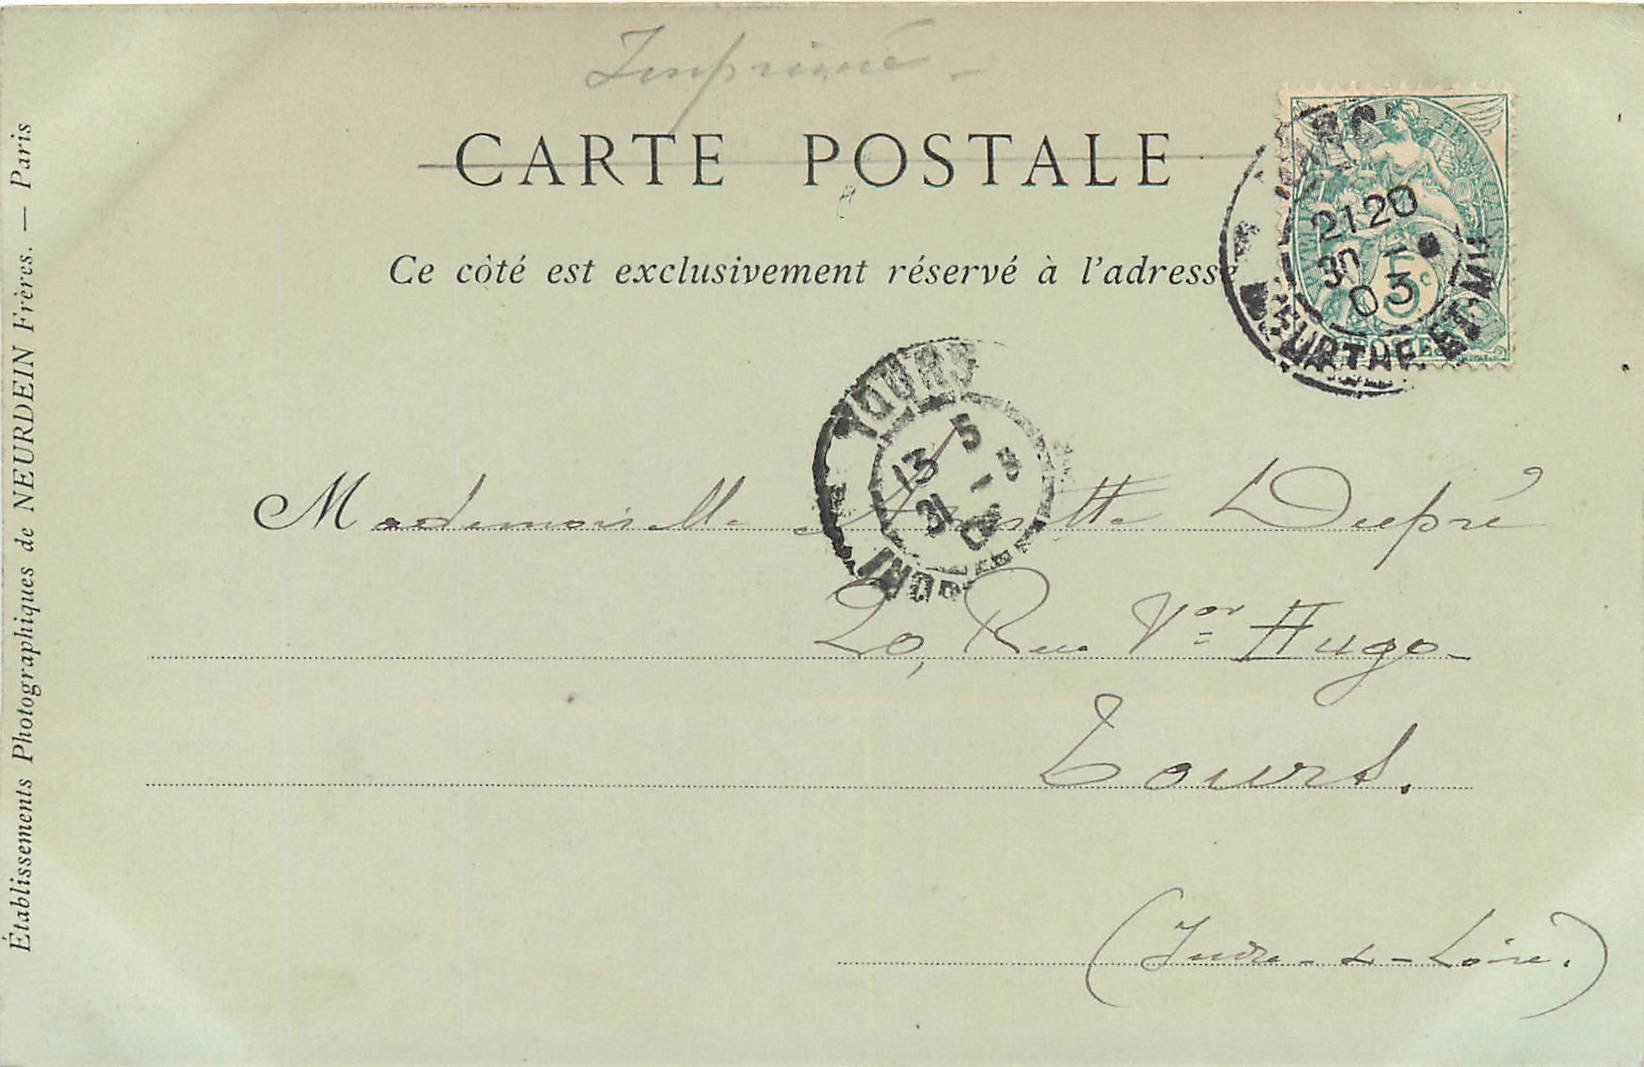 Imprimé -
CARTE POSTALE
Ce côté est exclusivement réservé à l'adresse
2120
30
03
5c
POSTES
MEURTHE-ET-M
TOURS
13 5
31 -3
INDRE
Mademoiselle Dupré
20, Rue Vor Hugo -
Tours.
(Indre-&-Loire.)
Établissements Photographiques de NEURDEIN Frères. — Paris